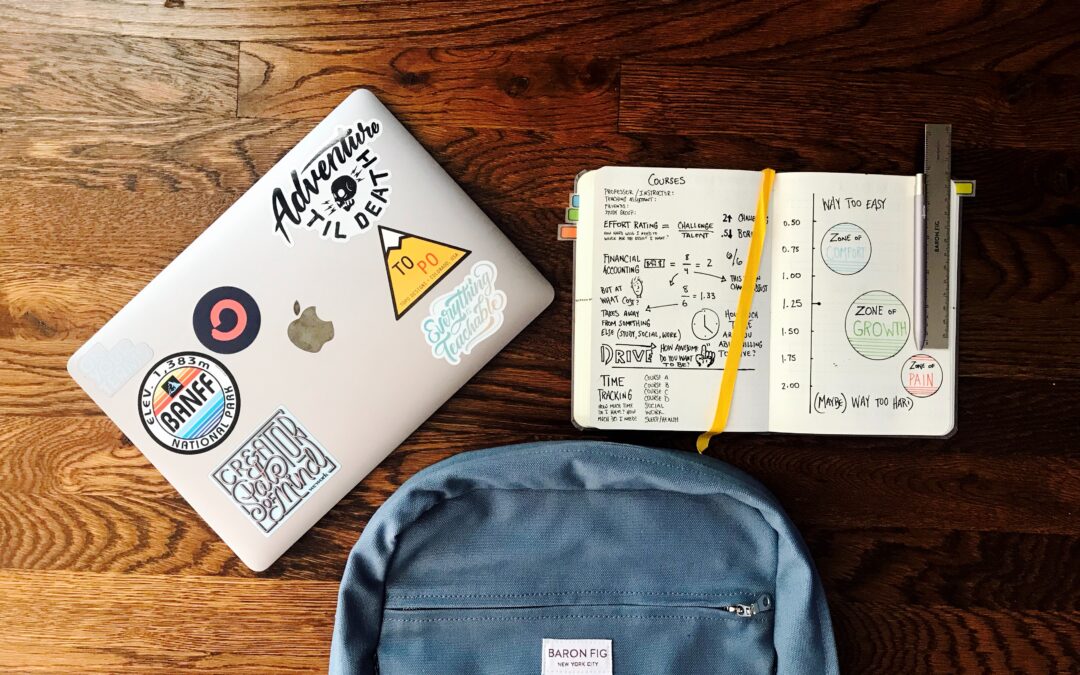 Adventure
TIL
DEATH
TO PO
Everything
is
Teachable
ELEV. 1,383m
BANFF
NATIONAL PARK
CREATOR
State
of mind
COURSES
PROFESSOR / INSTRUCTOR:
TEACHING ASSISTANT:
FRIENDS:
STUDY GROUP:
EFFORT RATING = CHALLENGE
TALENT
2↑
.5↓
FINANCIAL
ACCOUNTING
= 8/4 = 2
6/6
BUT AT
WHAT COST?
8/6 = 1.33
TAKES AWAY
FROM SOMETHING
ELSE (STUDY, SOCIAL, WORK)
DRIVE
HOW AWESOME
DO YOU WANT
TO BE?
TIME
TRACKING
HOW MUCH TIME
DO I HAVE? HOW
MUCH DO I NEED?
COURSE A
COURSE B
COURSE C
COURSE D
SOCIAL
WORK
SLEEP/HEALTH
WAY TOO EASY
0.50
0.75
1.00
1.25
1.50
1.75
2.00
ZONE OF
COMFORT
ZONE OF
GROWTH
ZONE OF
PAIN
(MAYBE) WAY TOO HARD
BARON FIG
BARON FIG
NEW YORK CITY